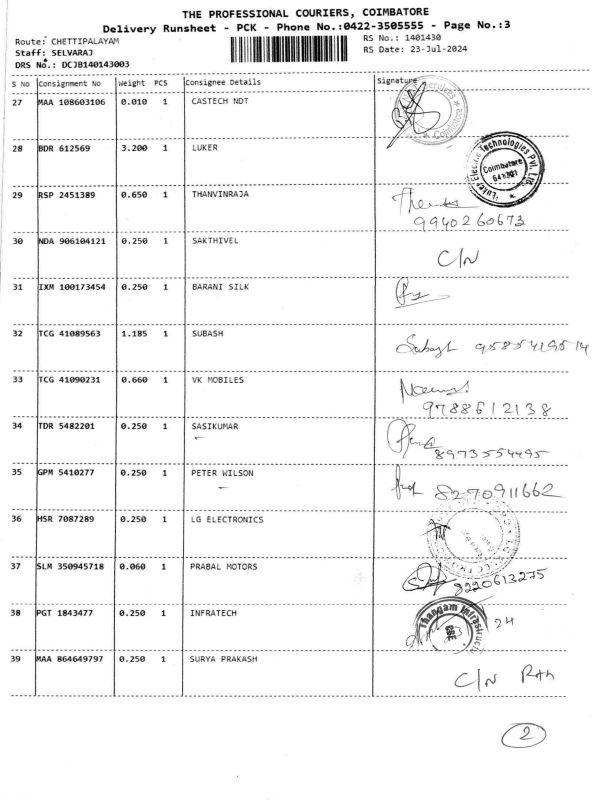 THE PROFESSIONAL COURIERS, COIMBATORE
Delivery Runsheet - PCK - Phone No.:0422-3505555 - Page No.:3
Route: CHETTIPALAYAM RS No.: 1401430
Staff: SELVARAJ RS Date: 23-Jul-2024
DRS No.: DCJB140143003
S No Consignment No Weight PCS Consignee Details Signature
27 MAA 108603106 0.010 1 CASTECH NDT
28 BDR 612569 3.200 1 LUKER
Coimbatore
29 RSP 2451389 0.650 1 THANVINRAJA
9940260673
30 NDA 906104121 0.250 1 SAKTHIVEL C/N
31 IXM 100173454 0.250 1 BARANI SILK
32 TCG 41089563 1.185 1 SUBASH Subash 9585419514
33 TCG 41090231 0.660 1 VK MOBILES
9788612138
34 TDR 5482201 0.250 1 SASIKUMAR
8973554495
35 GPM 5410277 0.250 1 PETER WILSON 8270911662
36 HSR 7087289 0.250 1 LG ELECTRONICS
37 SLM 350945718 0.060 1 PRABAL MOTORS 8220613275
38 PGT 1843477 0.250 1 INFRATECH Thangam 24
39 MAA 864649797 0.250 1 SURYA PRAKASH C/N
2